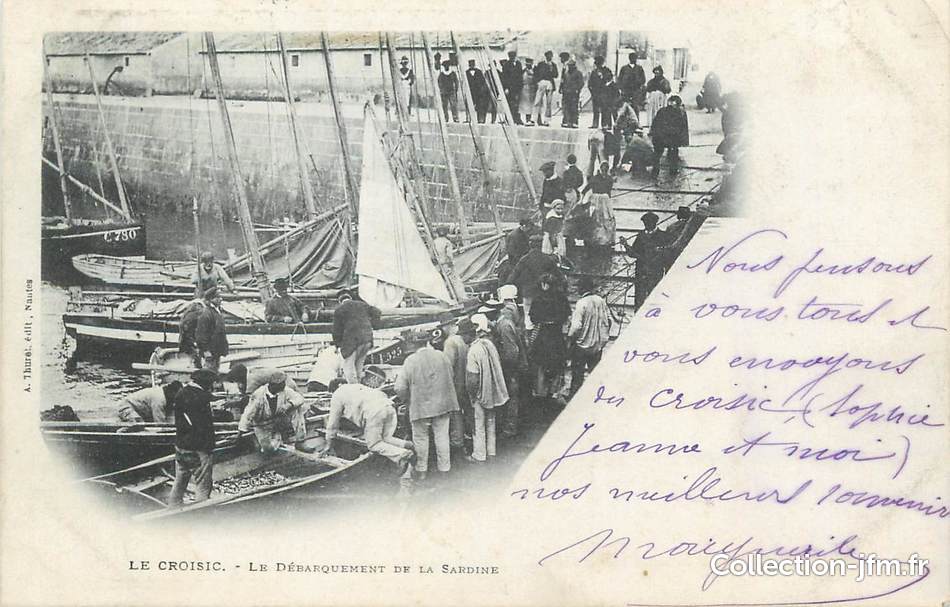 C 780
525
A. Thuret, édit., Nantes
Nous pensons
à vous tous et
vous envoyons
du Croisic, (Sophie
Jeanne et moi)
nos meilleurs souvenirs
Marguerite
LE CROISIC. - LE DÉBARQUEMENT DE LA SARDINE
Collection-jfm.fr